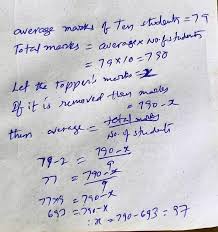 average marks of Ten students = 79
Total marks = average × No. of students
= 79×10 = 790
Let the Topper's marks = x
If it is removed then marks
= 790 - x
then average = total marks
No. of students
79-2 = 790-x
9
77 = 790-x
9
77×9 = 790-x
693 = 790-x
∴ x = 790-693 = 97